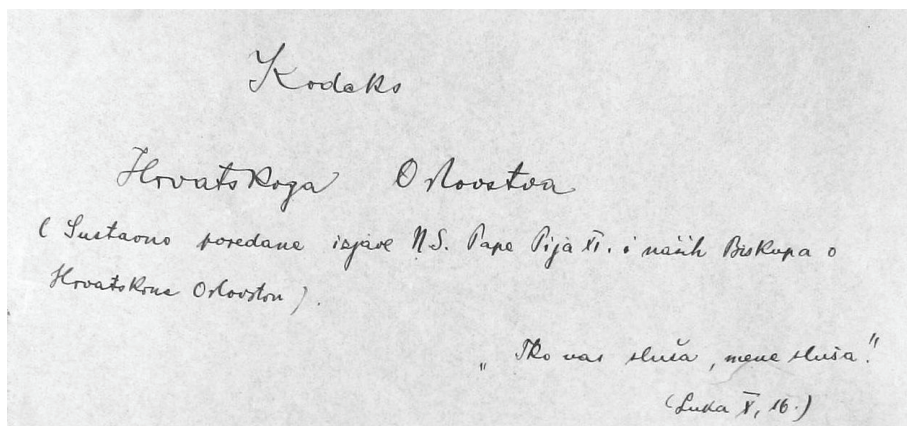 Kodeks
Hrvatskoga Orlovstva
( Sustavno poredane izjave N.S. Pape Pija XI. i naših Biskupa o
Hrvatskome Orlovstvu ).
„ Tko vas sluša, mene sluša.“
(Luka X, 16.)